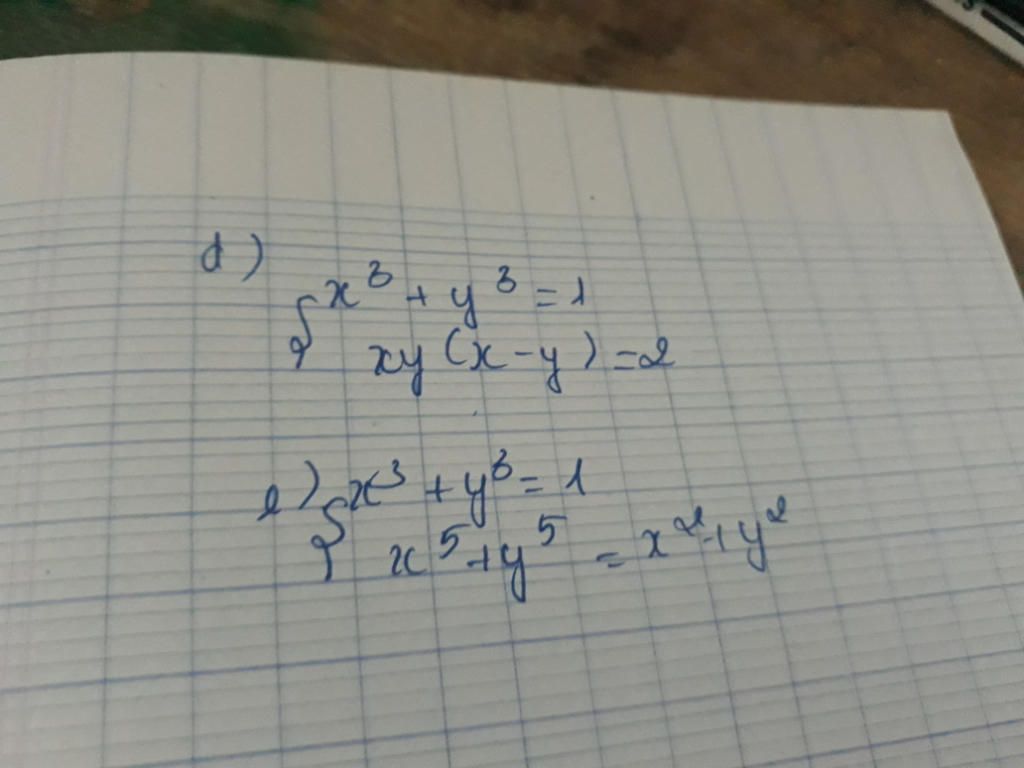 d)
{ x³ + y³ = 1
xy (x - y) = 2
e) { x³ + y³ = 1
x⁵ + y⁵ = x² + y²